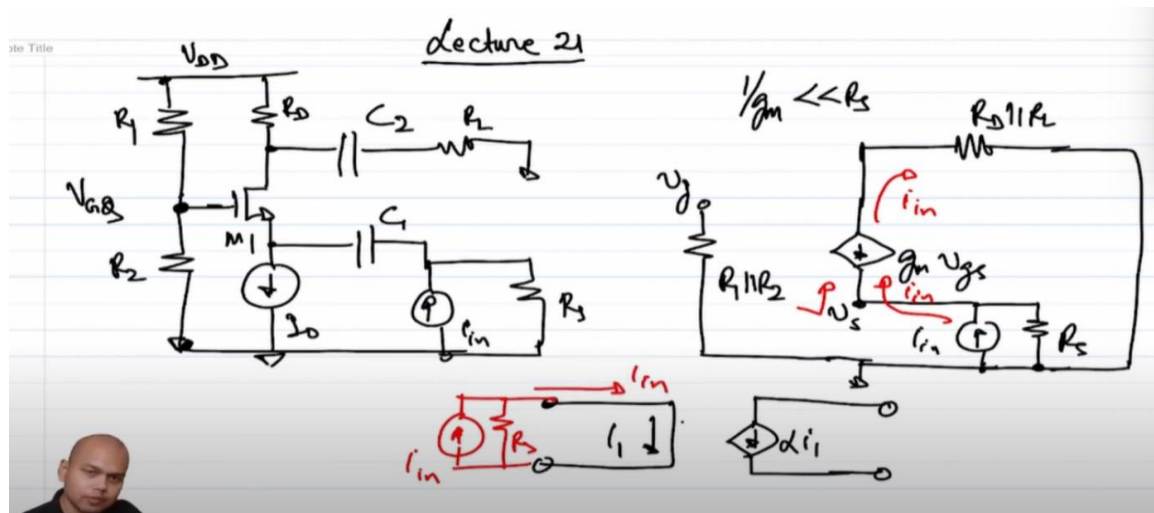 ote Title
Lecture 21
V_DD
R_1
R_D
C_2
R_L
V_GQ
M_1
C_1
R_2
I_0
i_in
R_s
1/g_m << R_s
R_D||R_L
v_g
i_in
g_m v_gs
R_1||R_2
v_s
i_in
i_in
R_s
i_in
i_in
R_s
i_1
αi_1